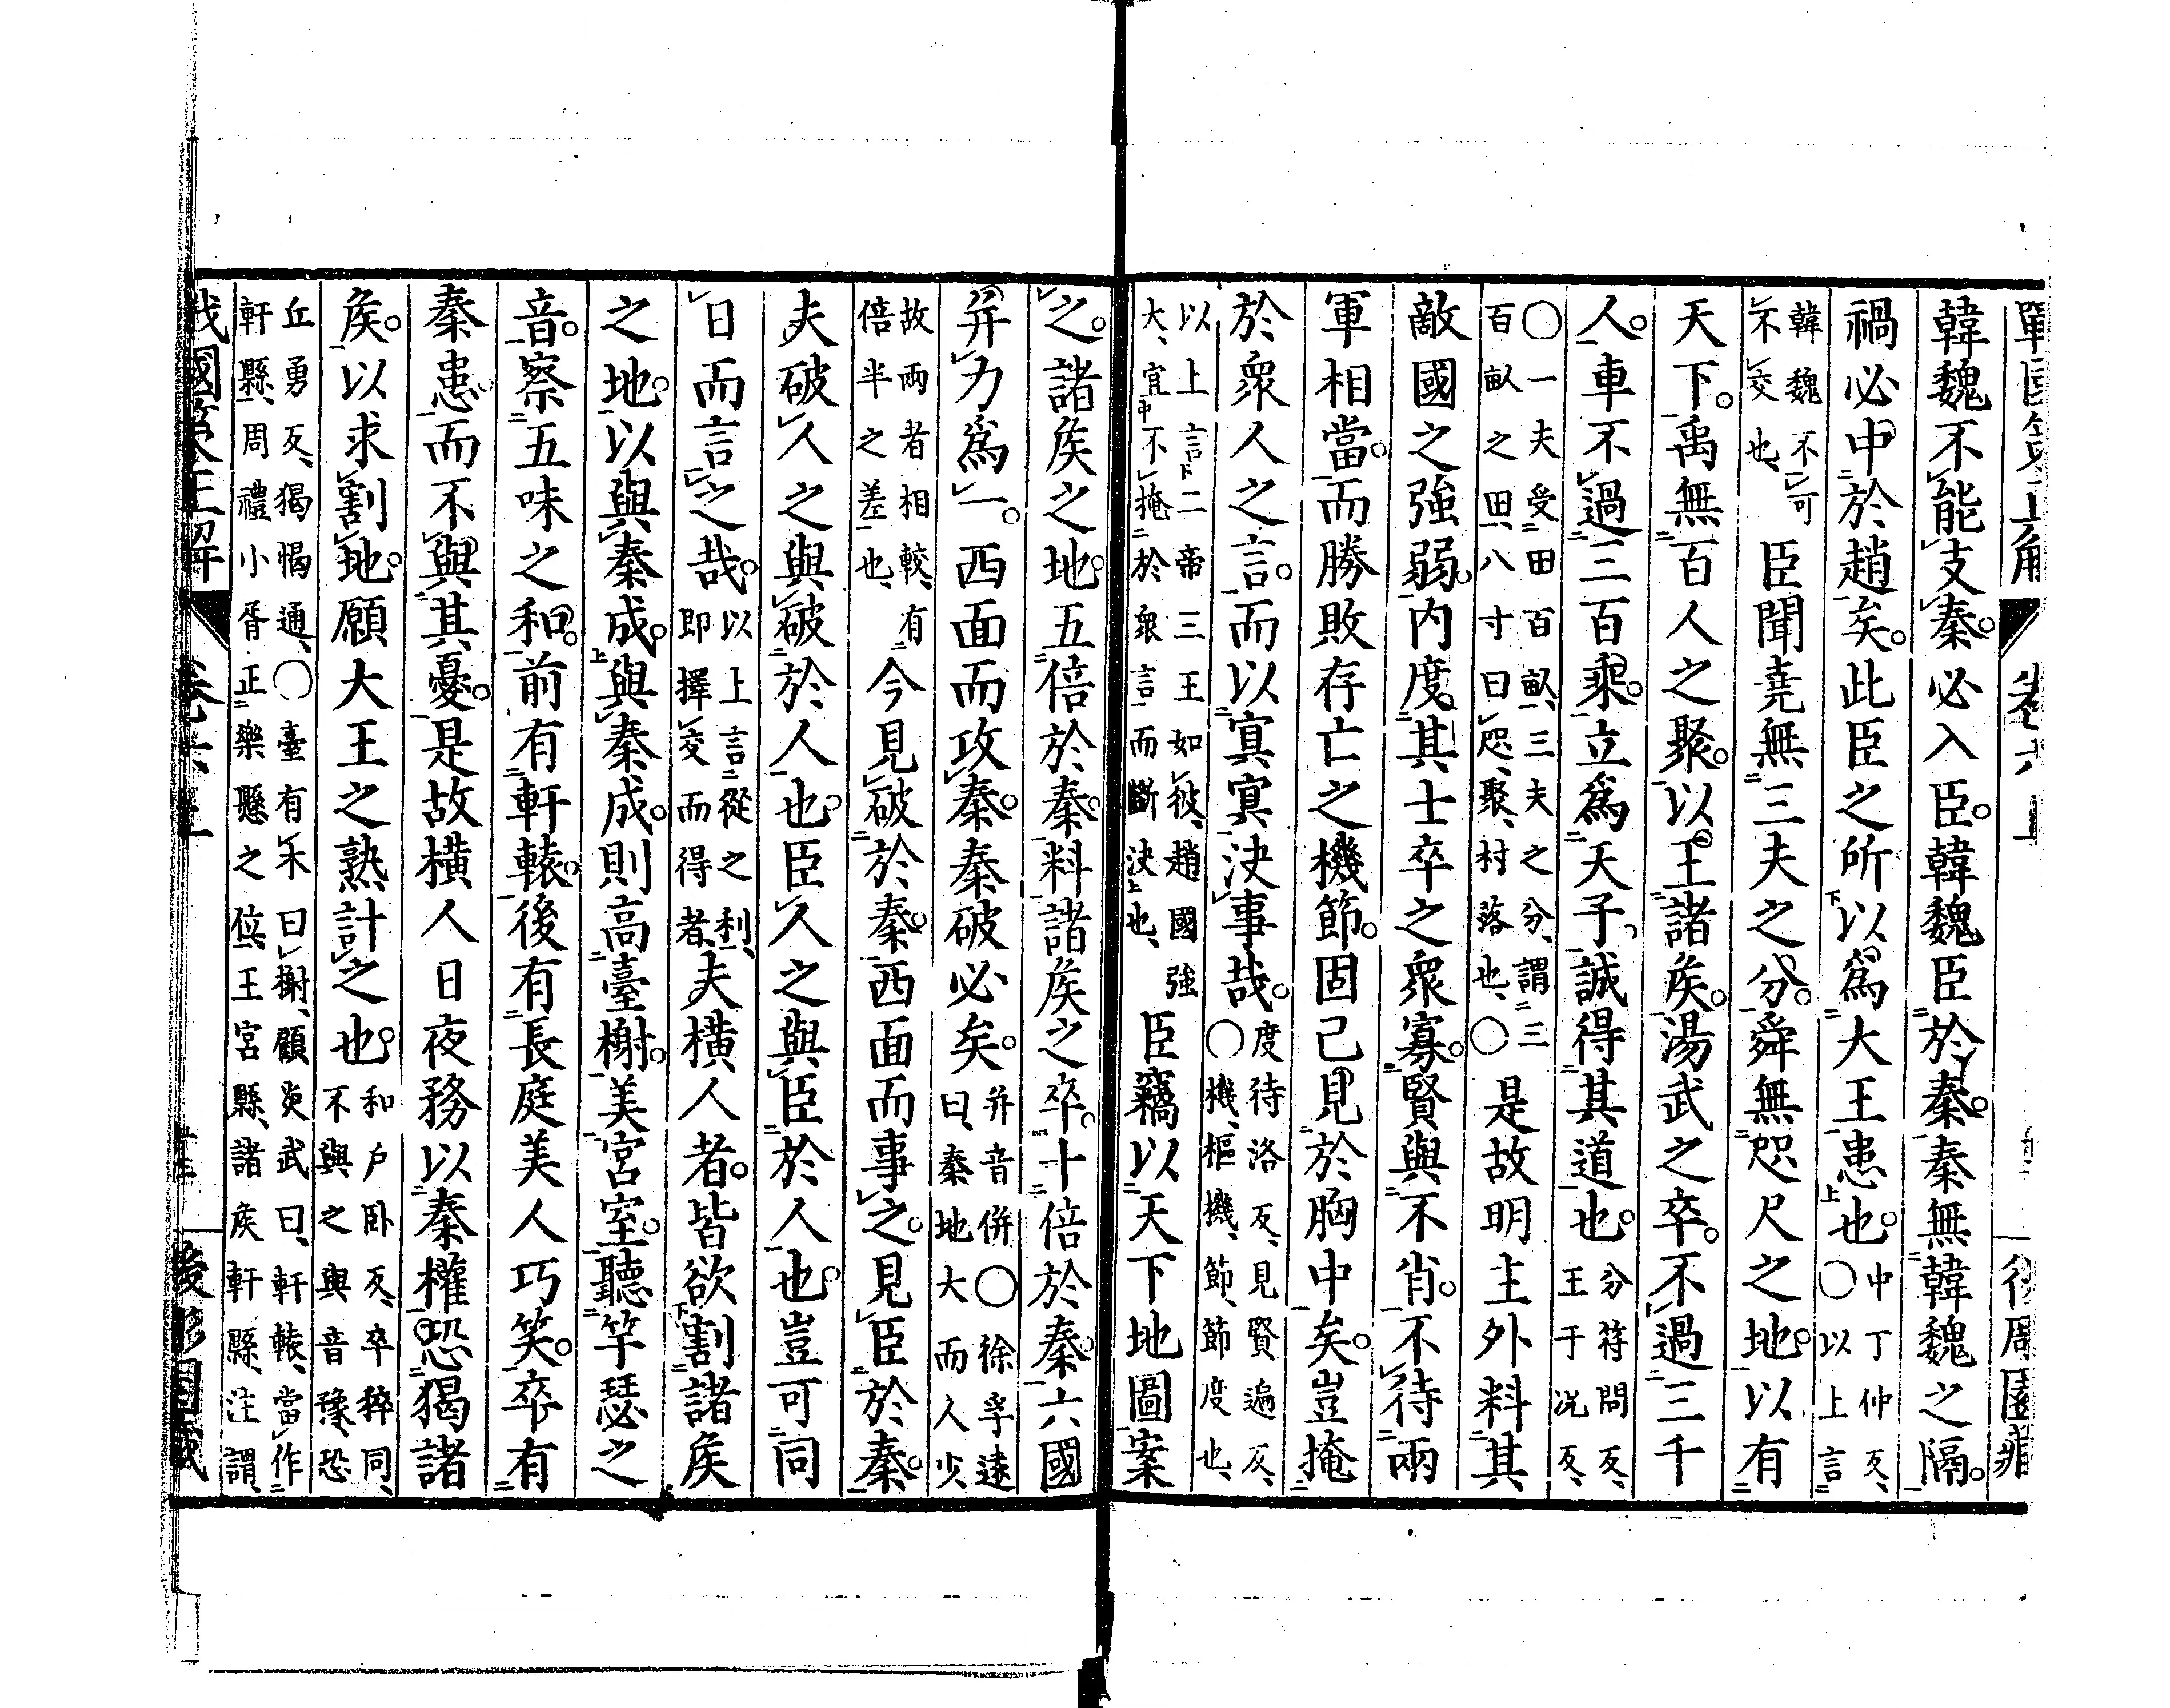 戰國策正解 卷六上 後凋園藏
韓魏不能支秦。必入臣。韓魏臣於秦。秦無韓魏之隔。
禍必中於趙矣。此臣之所以爲大王患也。中丁仲反、〇以上言
韓魏不可不交也、臣聞堯無三夫之分。舜無咫尺之地。以有
天下。禹無百人之聚。以王諸矦。湯武之卒。不過三千
人。車不過三百乘。立爲天子。誠得其道也。分符問反、王于況反、
〇一夫受田百畝、三夫之分、謂三百畝之田、八寸曰咫、聚、村落也、〇是故明主外料其
敵國之強弱。内度其士卒之衆寡。賢與不肖。不待兩
軍相當。而勝敗存亡之機節。固已見於胸中矣。豈掩
於衆人之言。而以冥冥決事哉。度待洛反、見賢遍反、〇機、樞機、節、節度也、
以上言二帝三王如彼、趙國強大、宜不掩於衆言而斷決也、臣竊以天下地圖案
之。諸矦之地。五倍於秦。料諸矦之卒。十倍於秦。六國
幷力爲一。西面而攻秦。秦破必矣。幷音倂〇徐孚遠曰、秦地大而人少、
故兩者相較、有倍半之差也、今見破於秦。西面而事之。見臣於秦。
夫破人之與破於人也。臣人之與臣於人也。豈可同
日而言之哉。以上言從之利、即擇交而得者、夫橫人者。皆欲割諸矦
之地。以與秦成。與秦成。則高臺榭。美宮室。聽竽瑟之
音。察五味之和。前有軒轅。後有長庭美人巧笑。卒有
秦患。而不與其憂。是故橫人日夜務以秦權恐猲諸
矦。以求割地。願大王之熟計之也。和戶臥反、卒猝同、不與之與音豫、恐
丘勇反、猲愒通、〇臺有木曰榭、顧炎武曰、軒轅、當作軒縣、周禮小胥正樂懸之位、王宮縣、諸矦軒縣、注謂、
戰國策正解 卷六上 廿三 後凋園藏